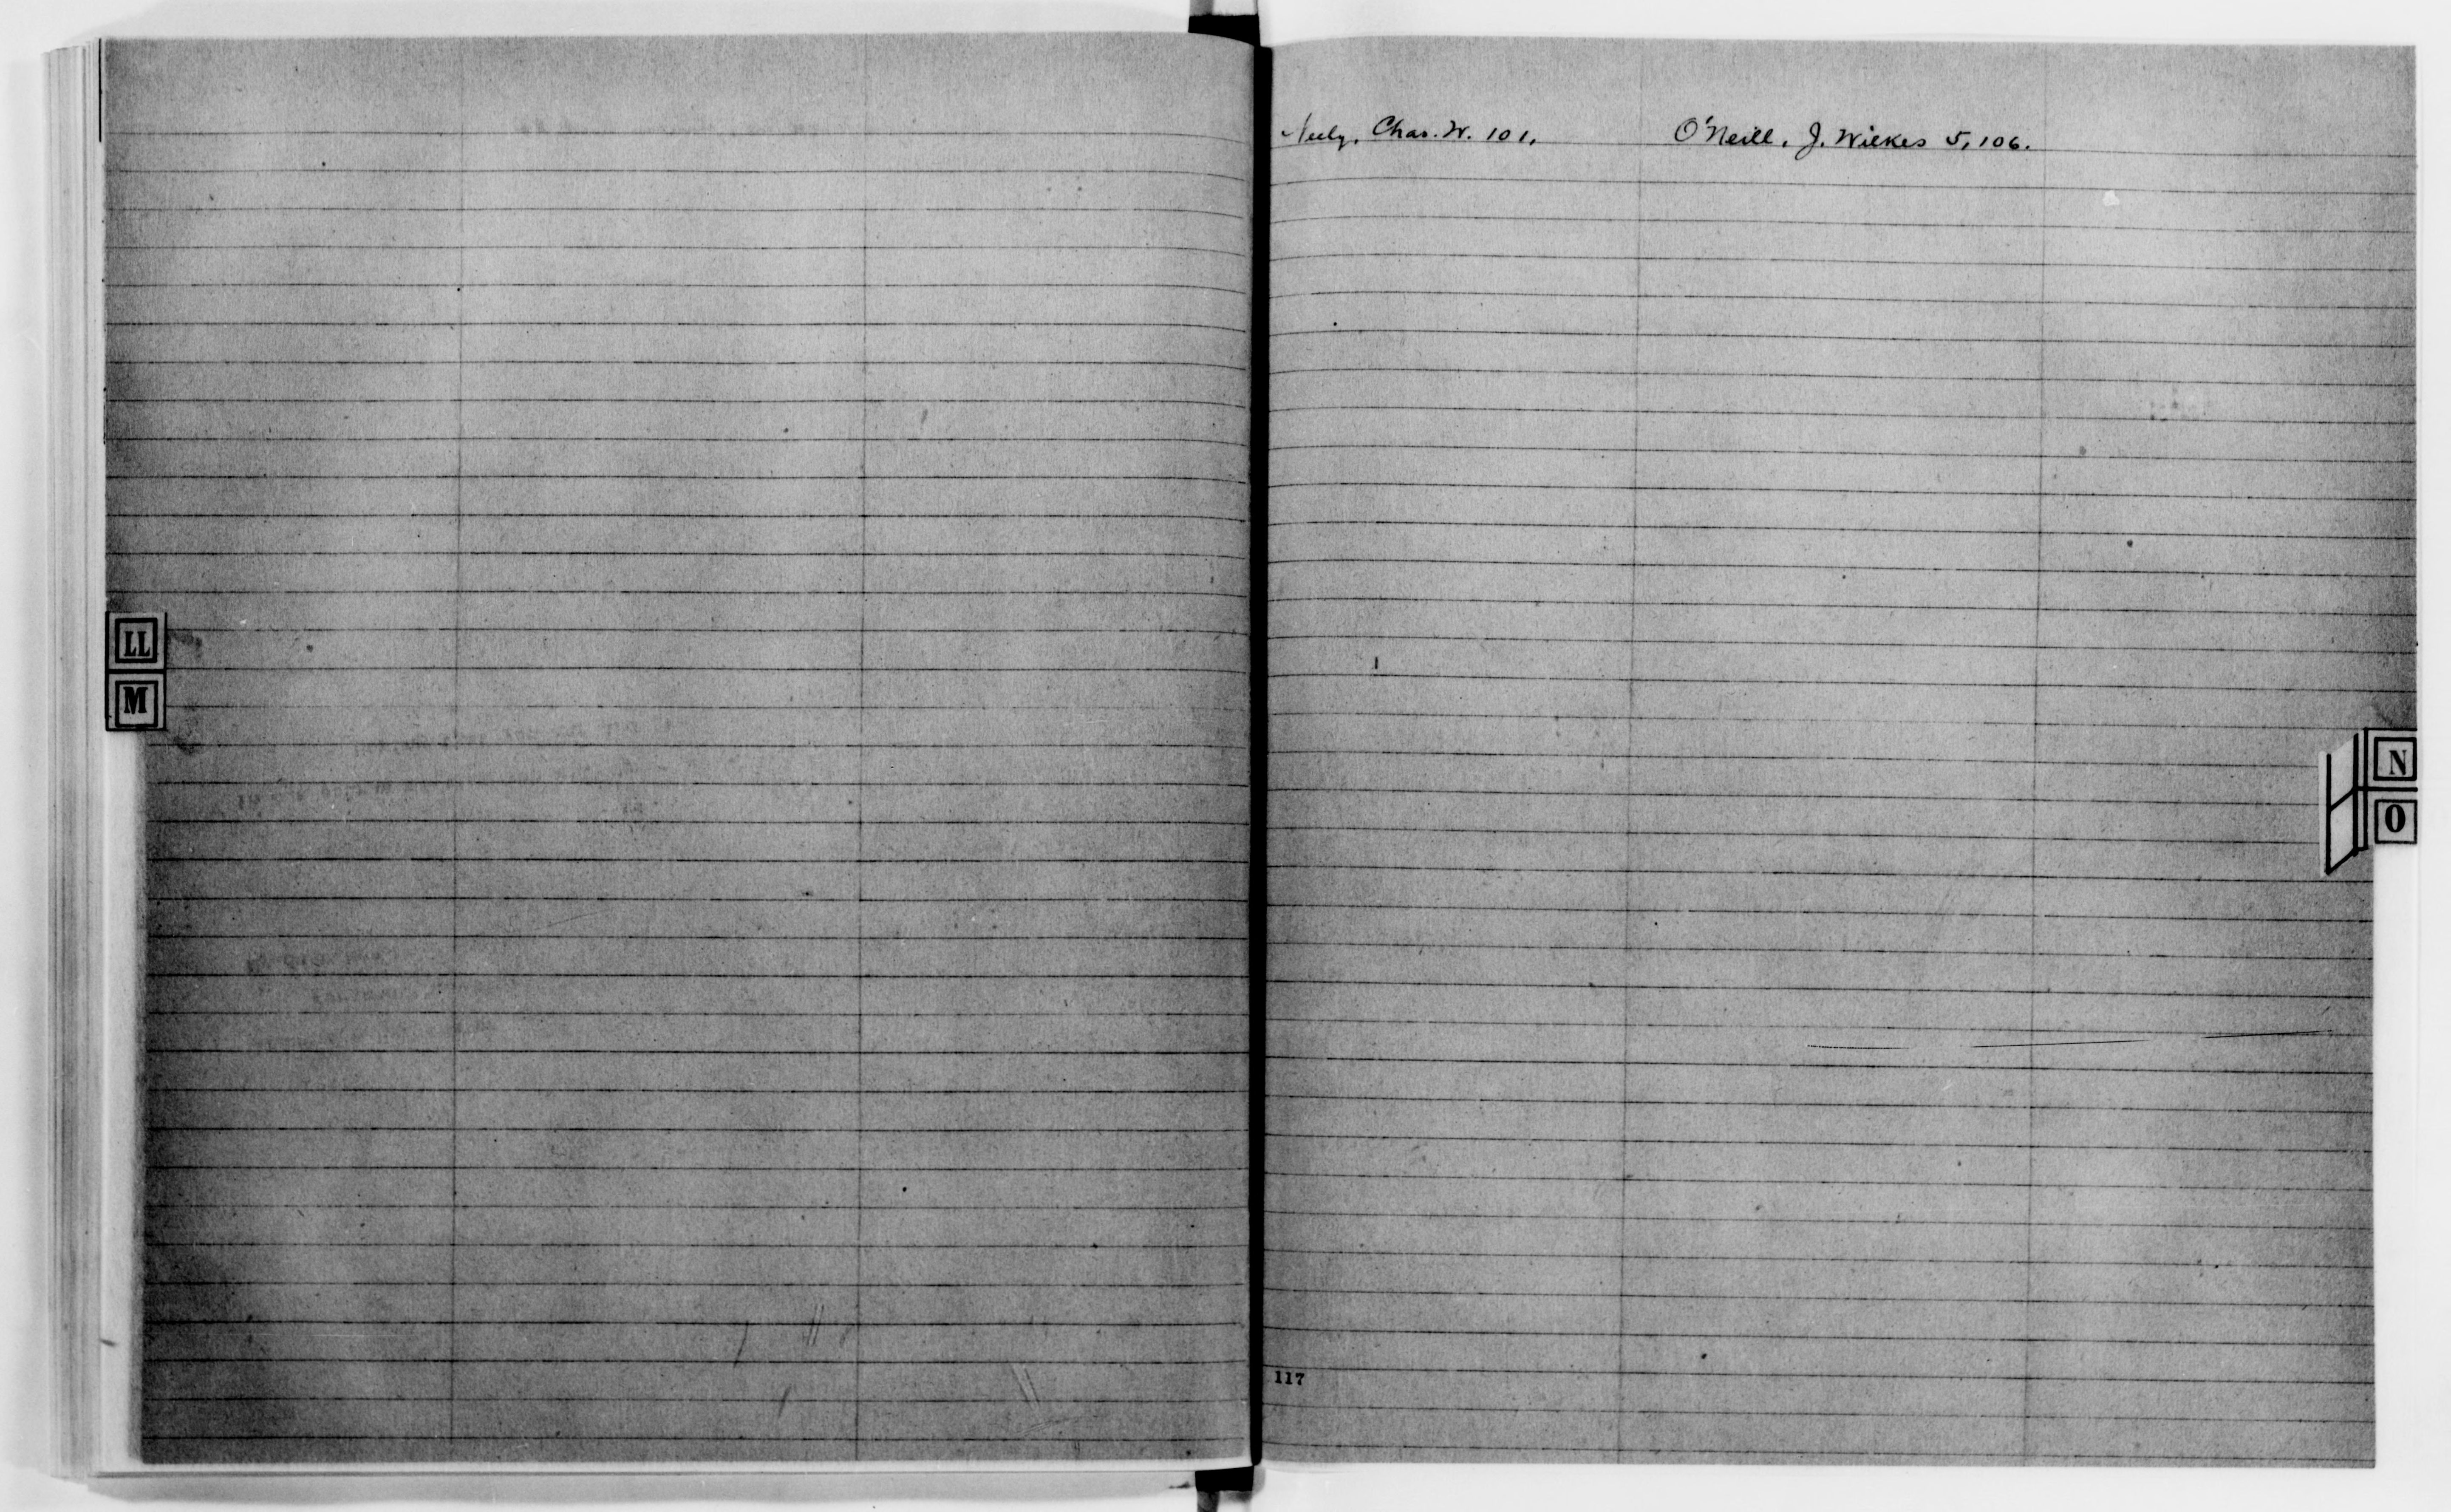 LL
M
Neely, Chas. W. 101,
O'Neill, J. Wilkes 5, 106.
N
O
117